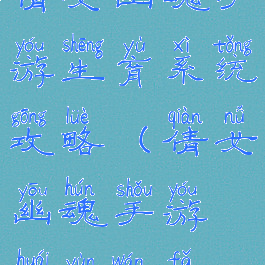 yóu shēng yù xì tǒng
游生育系统
gōng lüè qiàn nǚ
攻略（倩女
yōu hún shǒu yóu
幽魂手游
huái yùn wán fǎ